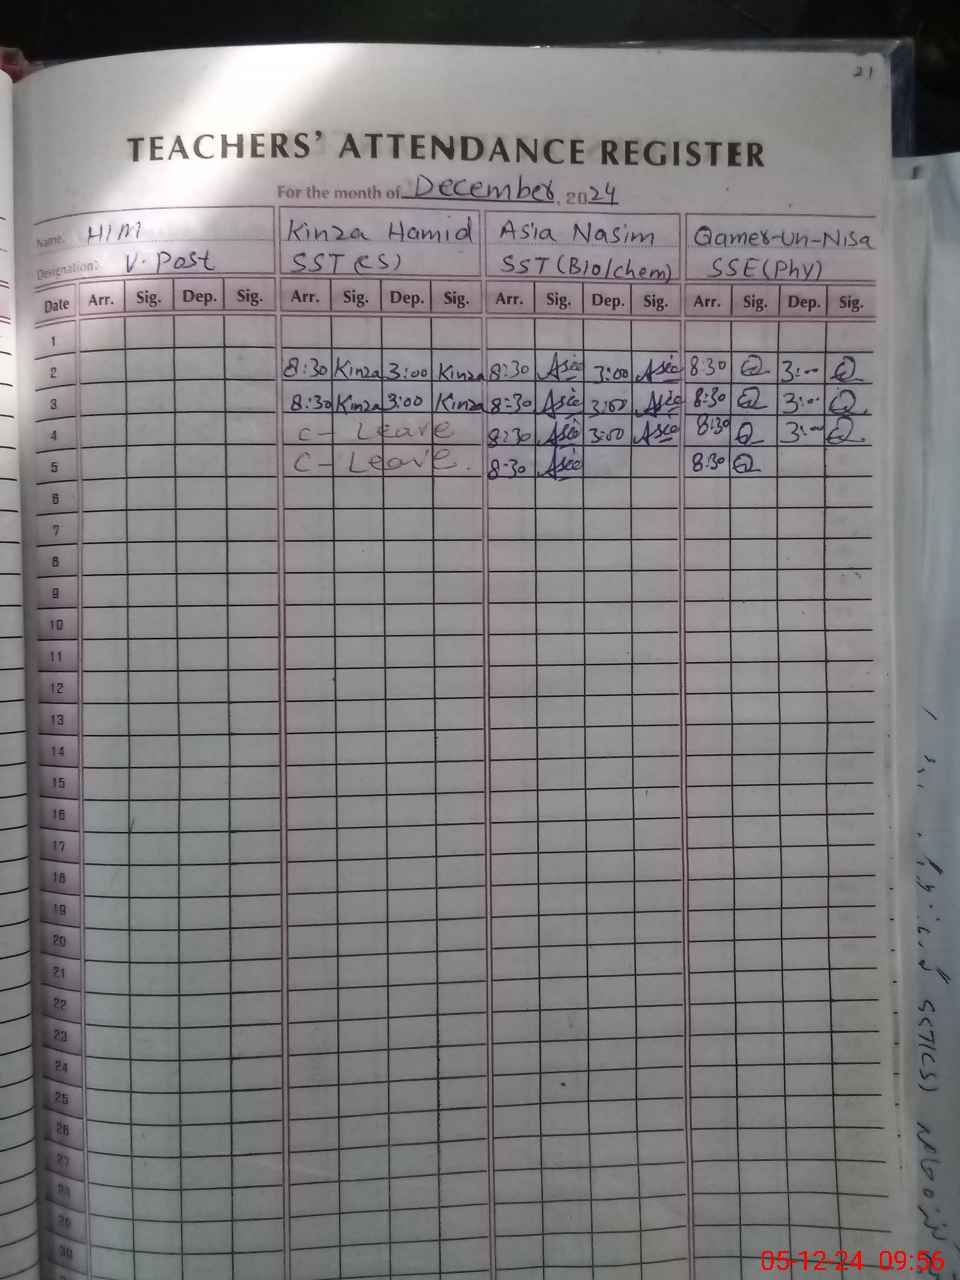 21
TEACHERS' ATTENDANCE REGISTER
For the month of December, 2024
Name: HIM Kinza Hamid Asia Nasim Qamer-Un-Nisa
Designation: V. Post SST (CS) SST (Bio/chem) SSE (Phy)
Date Arr. Sig. Dep. Sig. Arr. Sig. Dep. Sig. Arr. Sig. Dep. Sig. Arr. Sig. Dep. Sig.
1
2 8:30 Kinza 3:00 Kinza 8:30 Asia 3:00 Asia 8:30 Q 3:-- Q
3 8:30 Kinza 3:00 Kinza 8:30 Asia 3:00 Asia 8:30 Q 3:-- Q
4 C- Leave 8:30 Asia 3:00 Asia 8:30 Q 3:-- Q
5 C- Leave. 8:30 Asia 8:30 Q
6
7
8
9
10
11
12
13
14
15
16
17
18
19
20
21
22
23
24
25
26
27
28
29
30
SST(CS)
05-12-24 09:56